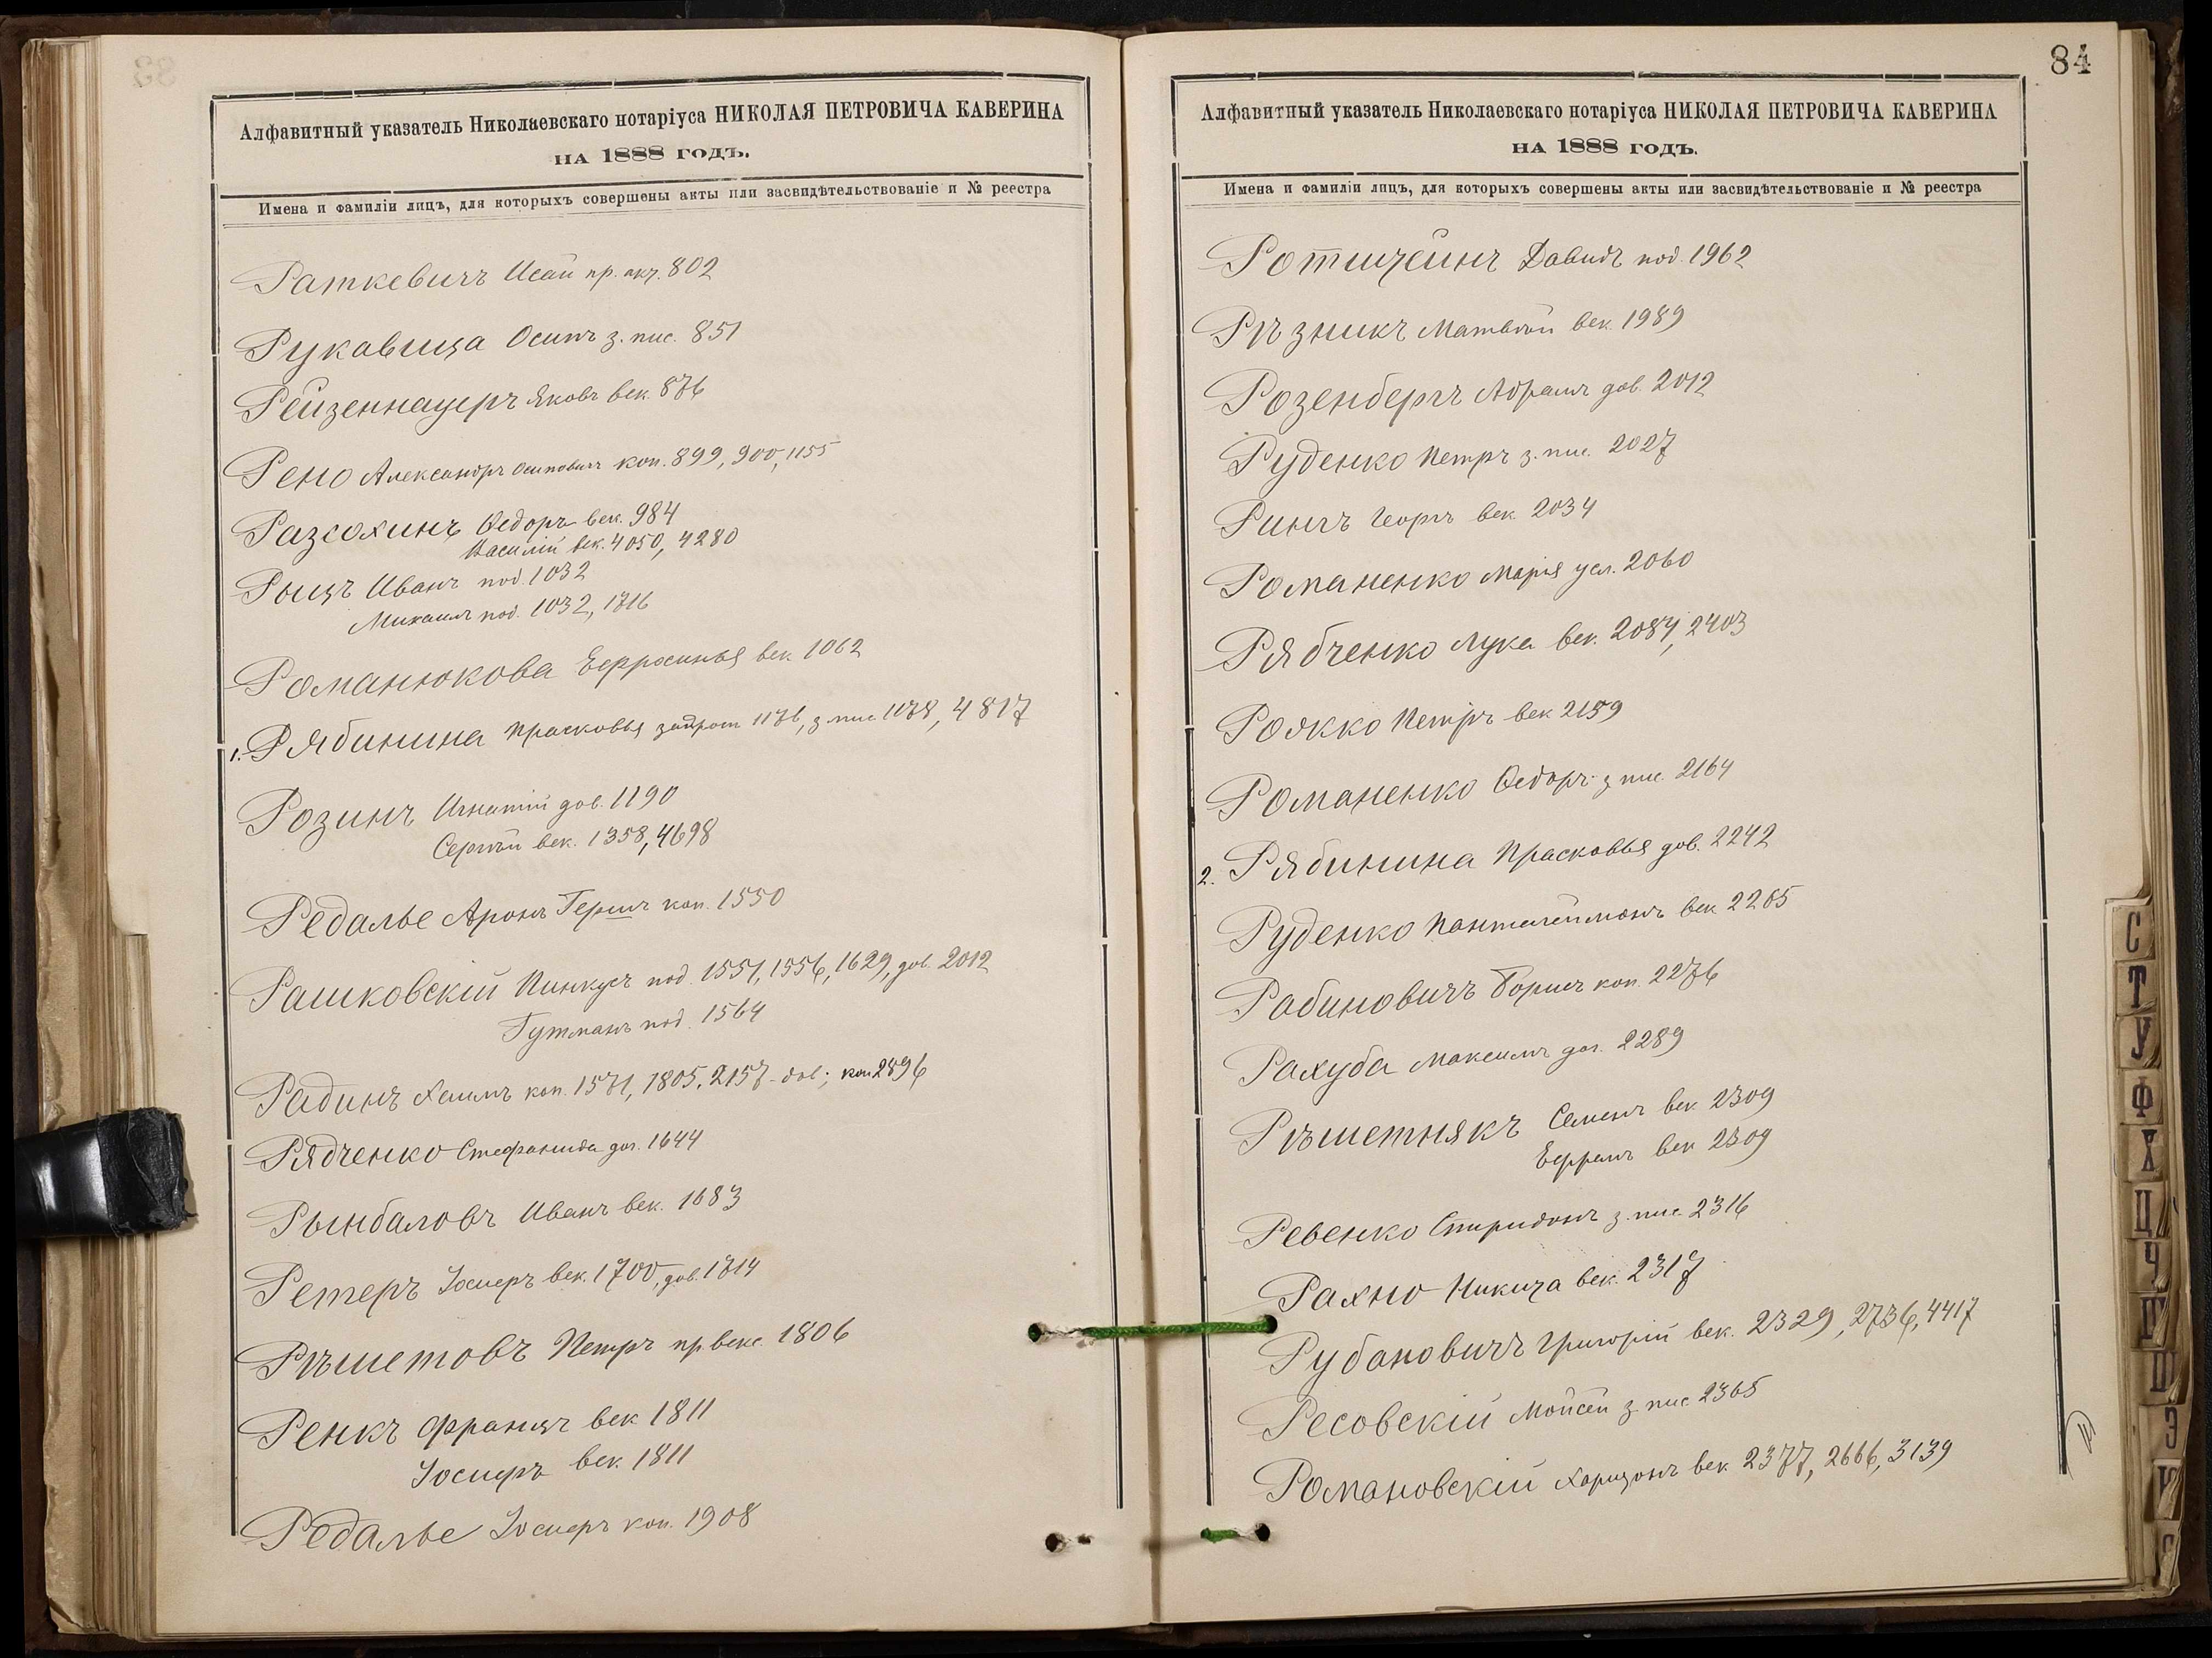 Алфавитный указатель Николаевскаго нотаріуса НИКОЛАЯ ПЕТРОВИЧА КАВЕРИНА
НА 1888 ГОДЪ.
Имена и фамиліи лицъ, для которыхъ совершены акты или засвидѣтельствованіе и № реестра
Раткевичъ Исай пр. акц. 802
Рукавица Осипъ з. пис. 851
Рейзеннауеръ Яковъ век. 876
Рено Александръ Осиповичъ коп. 899, 900, 1155
Разсохинъ Ѳедоръ век. 984
Василій век. 4050, 4280
Рыцъ Иванъ под. 1032
Михаилъ под. 1032, 1716
Романюкова Ефросинья век. 1062
1. Рябинина Прасковья 1176, з. пис. 1178, 4817
Розинъ Игнатій дов. 1190
Сергѣй век. 1358, 4698
Редалье Аронъ Гершъ коп. 1550
Рашковскій Пинкусъ под. 1551, 1556, 1629, дов. 2012
Гутманъ под. 1564
Радинъ Хаимъ коп. 1571, 1805, 2157 - дов; коп 2896
Рядченко Стефанида дог. 1644
Рынбаловъ Иванъ век. 1683
Ретеръ Іосифъ век. 1700, дов. 1714
Рѣшетовъ Петръ пр. векс. 1806
Ренкъ Францъ век. 1811
Іосифъ век. 1811
Редалье Іосифъ коп. 1908
84
Алфавитный указатель Николаевскаго нотаріуса НИКОЛАЯ ПЕТРОВИЧА КАВЕРИНА
НА 1888 ГОДЪ.
Имена и фамиліи лицъ, для которыхъ совершены акты или засвидѣтельствованіе и № реестра
Ротштейнъ Давидъ под. 1962
Рѣзникъ Матвѣй век. 1989
Розенбергъ Абрамъ дов. 2012
Руденко Петръ з. пис. 2027
Рингъ Георгъ век. 2034
Романенко Марія усл. 2060
Рябченко Лука век. 2084, 2403
Рояко Петръ век. 2159
Романенко Ѳедоръ з. пис. 2164
2. Рябинина Прасковья дов. 2242
Руденко Пантелеймонъ век. 2265
Рабиновичъ Борисъ коп. 2276
Рахуба Максимъ дог. 2289
Рѣшетнякъ Семенъ век. 2309
Ефремъ век. 2309
Ревенко Спиридонъ з. пис. 2316
Рахно Никита век. 2317
Рубановичъ Григорій век. 2329, 2736, 4417
Ресовскій Мойсей з. пис. 2365
Романовскій Харитонъ век. 2377, 2666, 3139
С
Т
У
Ф
Х
Ц
Ч
Ш
Щ
Э